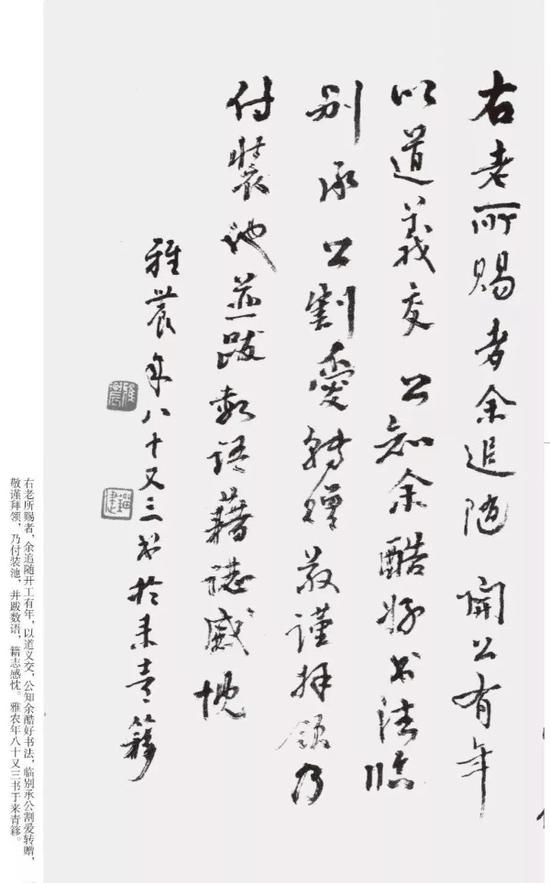 右老所賜者余追隨開公有年
以道義交公知余酷好书法臨
别承公割愛轉贈敬谨拜領乃
付裝池並跋數语藉誌感忱
雅農年八十又三书於来青簃
右老所赐者，余追随开工有年，以道义交，公知余酷好书法，临别承公割爱转赠，
敬谨拜领，乃付装池，并跋数语，籍志感忱。雅农年八十又三书于来青簃。